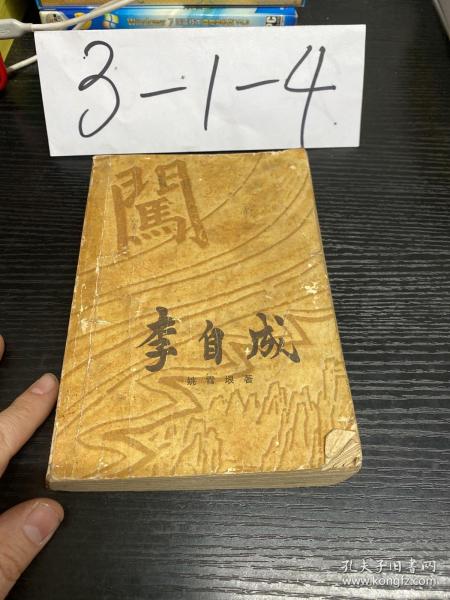 3-1-4
闖
李自成
姚雪垠著
孔夫子旧书网
www.kongfz.com